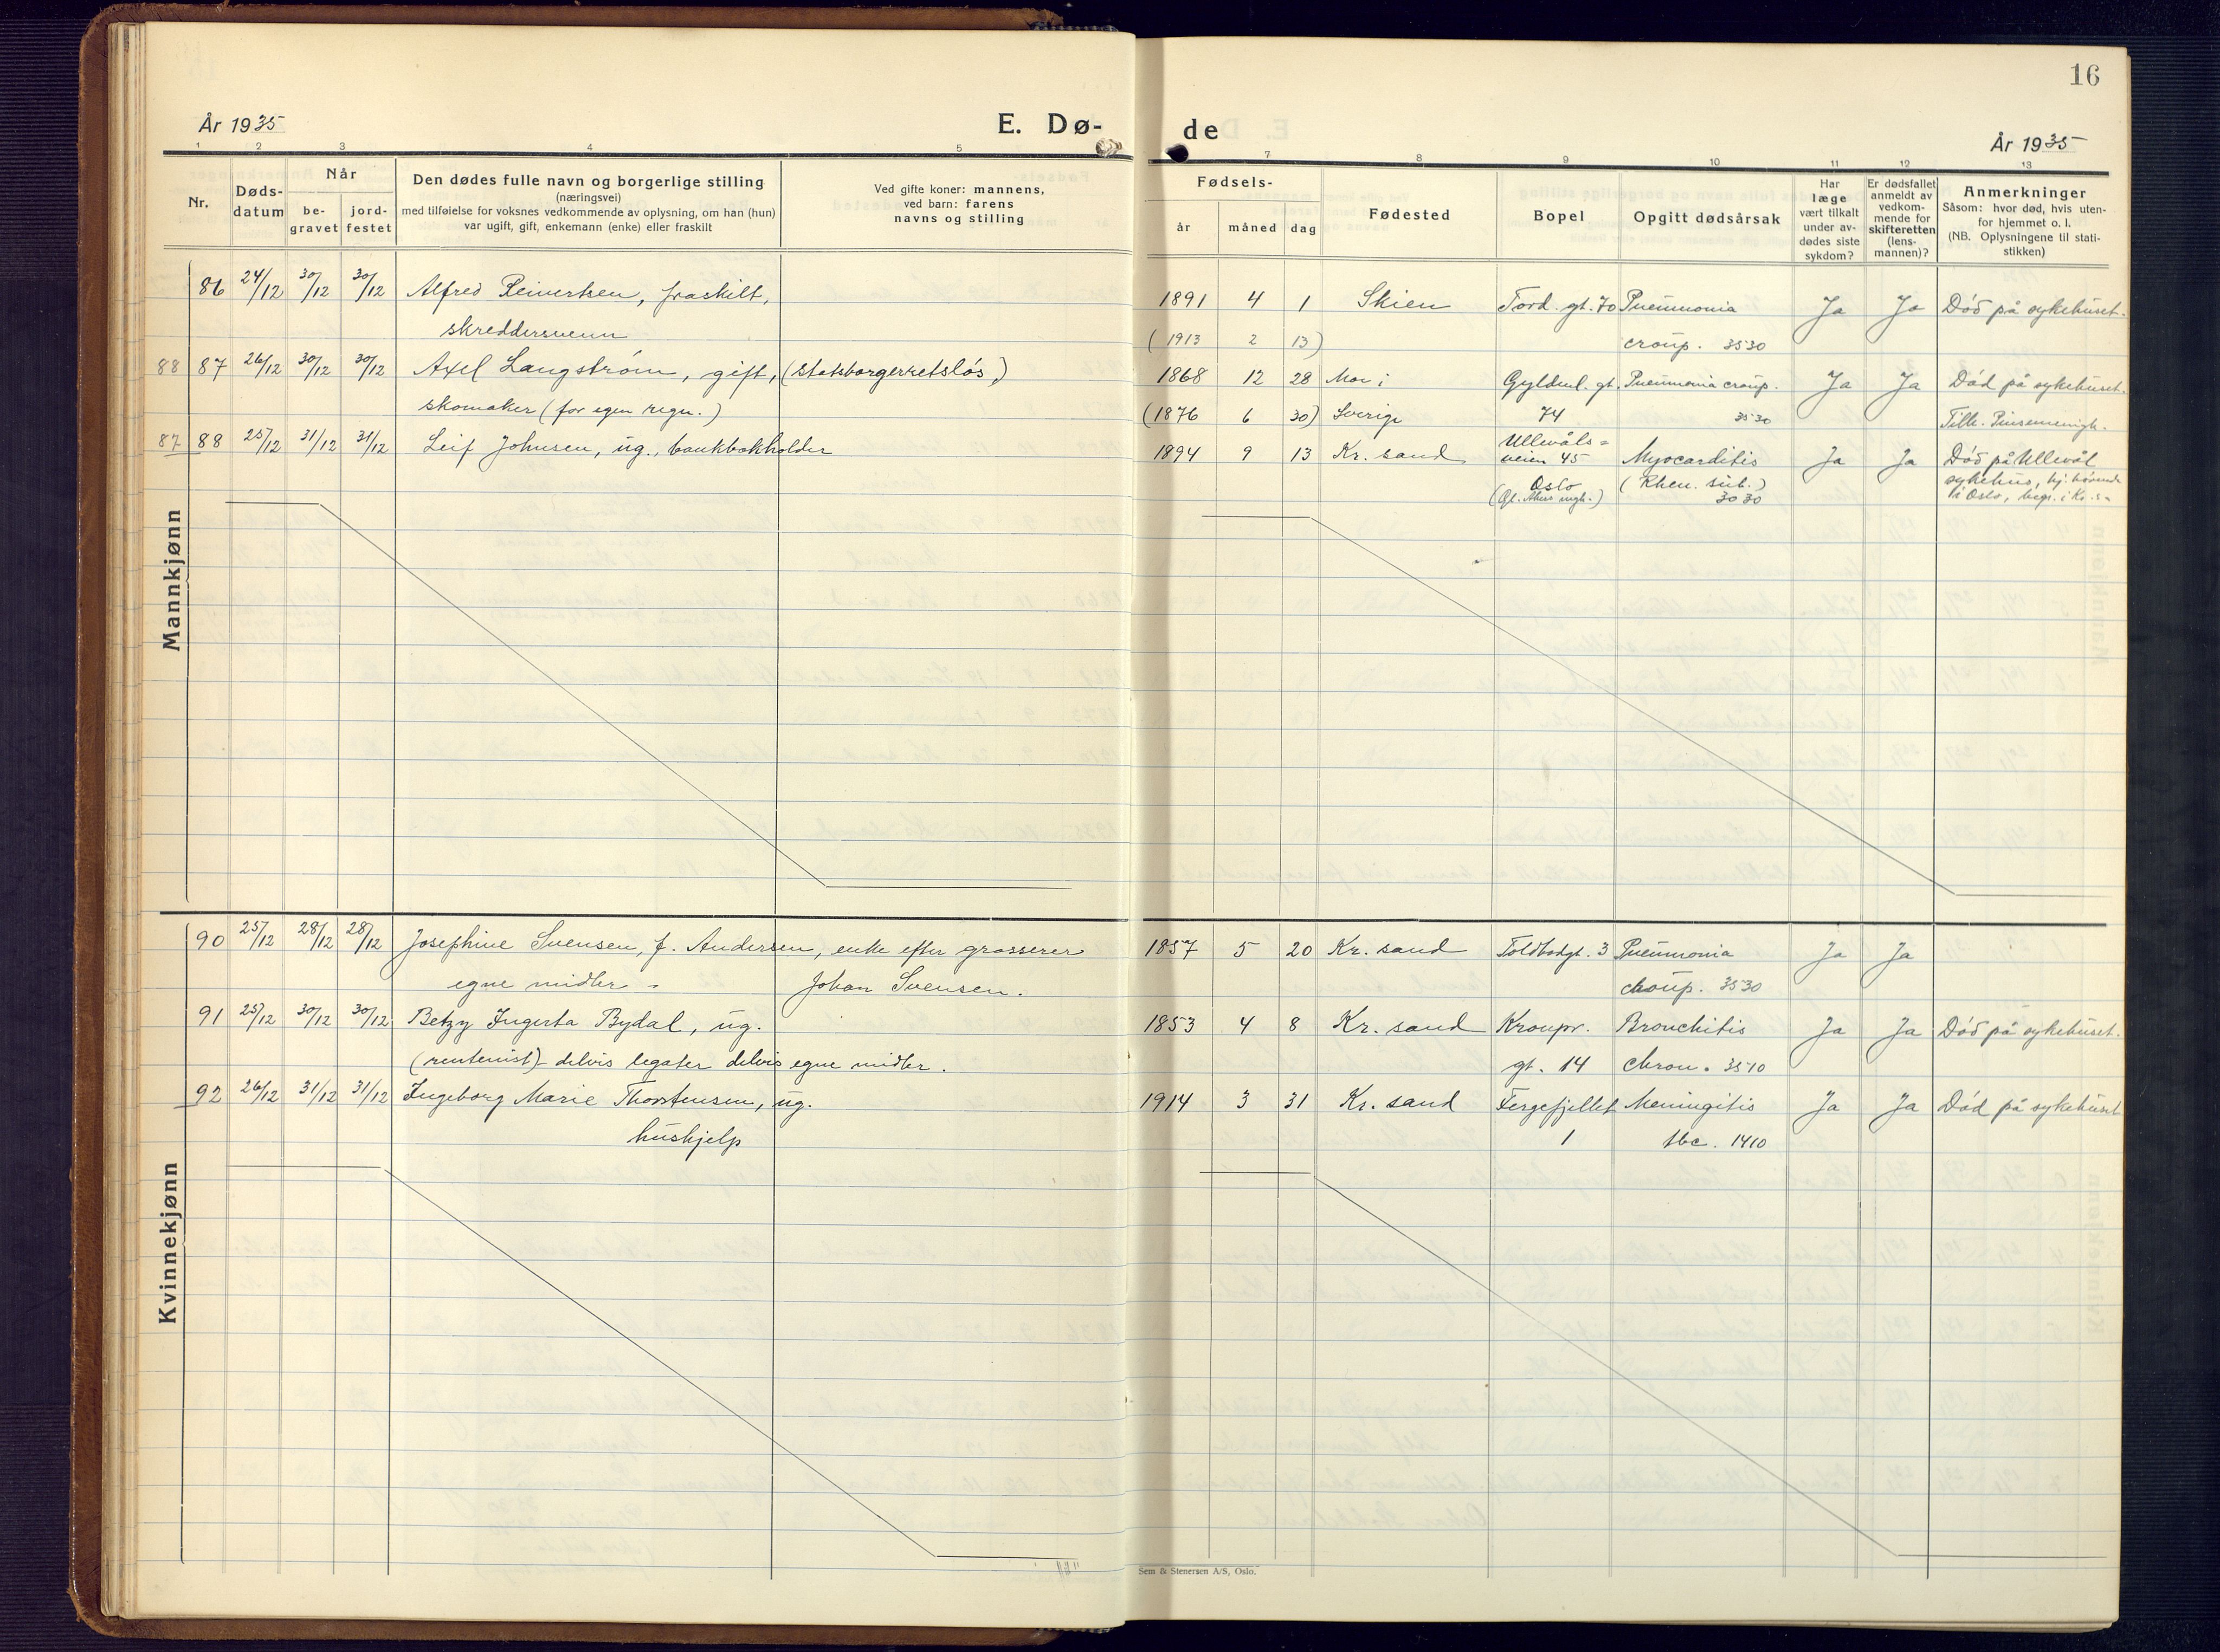 16
År 1935
E. Dø-
de
År 1935
1 2 3 4 5
7 8 9 10 11 12 13
Nr.
Døds-
datum
Når
be-
gravet
jord-
festet
Den dødes fulle navn og borgerlige stilling
(næringsvei)
med tilføielse for voksnes vedkommende av oplysning, om han (hun)
var ugift, gift, enkemann (enke) eller fraskilt
Ved gifte koner: mannens,
ved barn: farens
navns og stilling
Fødsels-
år måned dag
Fødested
Bopel
Opgitt dødsårsak
Har
læge
vært tilkalt
under av-
dødes siste
sykdom?
Er dødsfallet
anmeldt av
vedkom-
mende for
skifteretten
(lens-
mannen)?
Anmerkninger
Såsom: hvor død, hvis uten-
for hjemmet o. l.
(NB. Oplysningene til stati-
stikken)
Mannkjønn
86 24/12 30/12 30/12 Alfred Reinertsen, fraskilt, 1891 4 1 Skien Tord. gt. 70 Pneumonia Ja Ja Död på sykehuset.
skreddersvenn (1913 2 13) croup. 3530
88 87 26/12 30/12 30/12 Axel Langström, gift, (statsborgerretslös) 1868 12 28 Mo i Gyldenl. gt. Pneumonia croup. Ja Ja Död på sykehuset.
skomaker (for egen regn.) (1876 6 30) Sverige 74 3530
87 88 25/12 31/12 31/12 Leif Johnsen, ug., bankbokholder 1894 9 13 Kr. sand Ullevåls=
veien 45 Myocarditis Ja Ja Död på Ullevål
Oslo (Rheu. sub.) sykehus,
(Gl. Akers mgh.) 3030 i Oslo, begr. i Kr. s-
Kvinnekjønn
90 25/12 28/12 28/12 Josephine Svensen, f. Andersen, enke efter grosserer 1857 5 20 Kr. sand Toldbodgt. 3 Pneumonia Ja Ja
egne midler - Johan Svensen. croup. 3530
91 25/12 30/12 30/12 Betzy Ingerta Bydal, ug. 1853 4 8 Kr. sand Kronpr. Bronchitis Ja Ja Död på sykehuset.
(rentenist) - delvis legater delvis egne midler. gt. 14 chron. 3510
92 26/12 31/12 31/12 Ingeborg Marie Thorstensen, ug. 1914 3 31 Kr. sand Fergefjellet Meningitis Ja Ja Död på sykehuset
hushjelp 1 tbc. 1410
Sem & Stenersen A/S, Oslo.